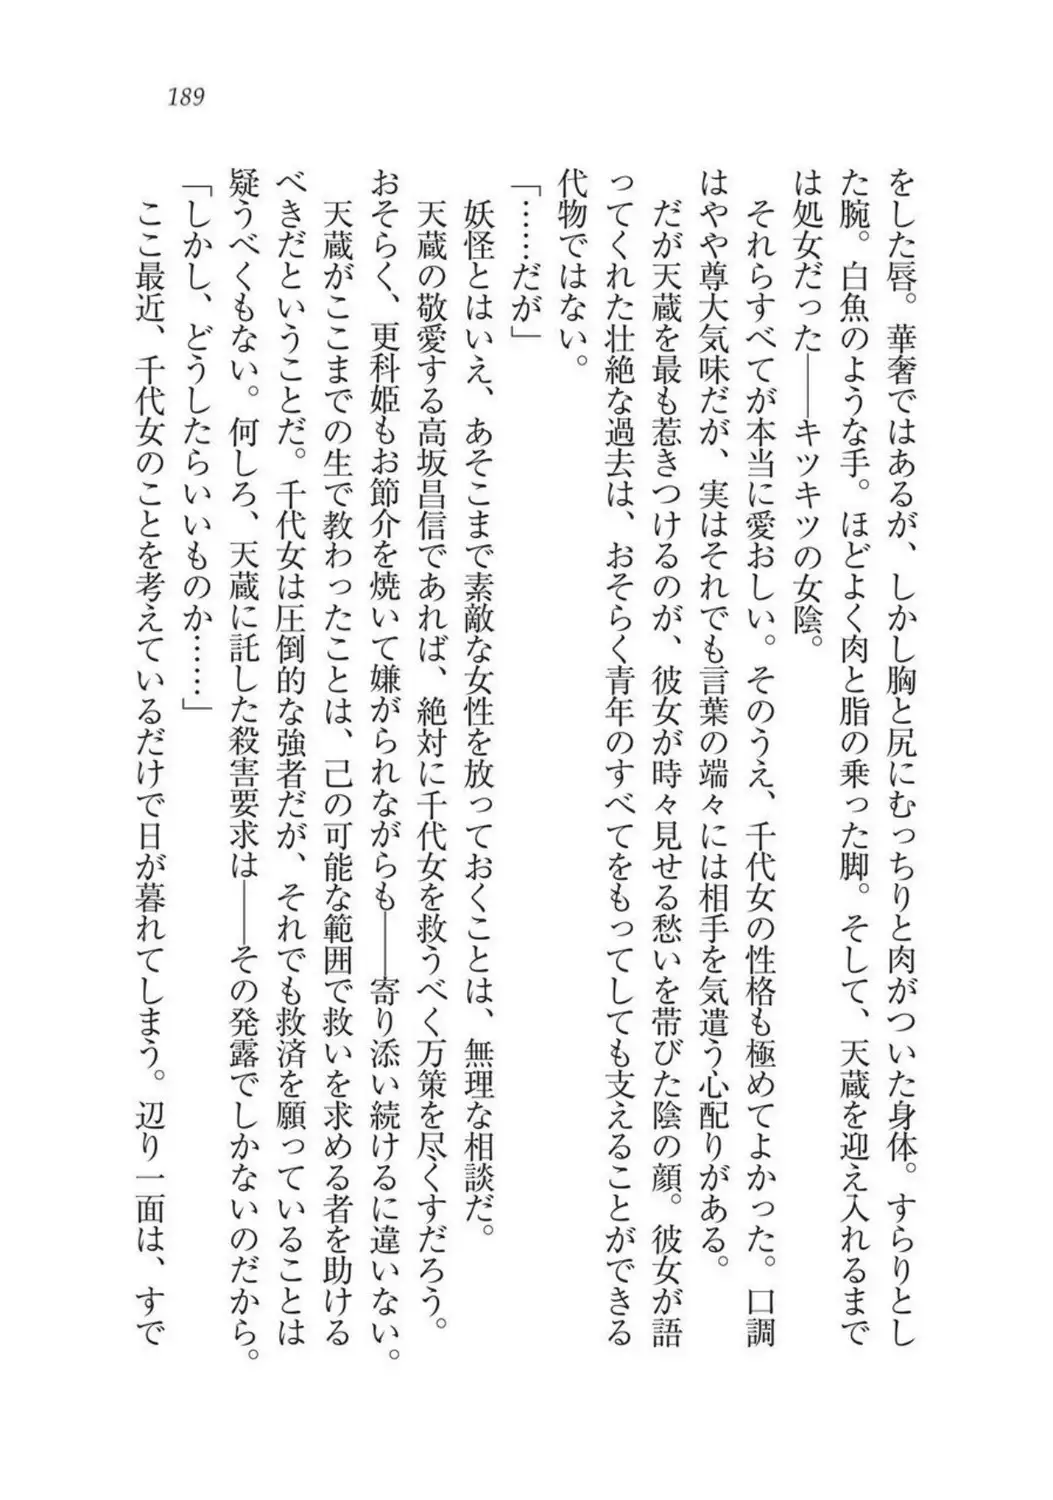 189
をした唇。華奢ではあるが、しかし胸と尻にむっちりと肉がついた身体。すらりとし
た腕。白魚のような手。ほどよく肉と脂の乗った脚。そして、天蔵を迎え入れるまで
は処女だった――キツキツの女陰。
それらすべてが本当に愛おしい。そのうえ、千代女の性格も極めてよかった。口調
はやや尊大気味だが、実はそれでも言葉の端々には相手を気遣う心配りがある。
だが天蔵を最も惹きつけるのが、彼女が時々見せる愁いを帯びた陰の顔。彼女が語
ってくれた壮絶な過去は、おそらく青年のすべてをもってしても支えることができる
代物ではない。
「……だが」
妖怪とはいえ、あそこまで素敵な女性を放っておくことは、無理な相談だ。
天蔵の敬愛する高坂昌信であれば、絶対に千代女を救うべく万策を尽くすだろう。
おそらく、更科姫もお節介を焼いて嫌がられながらも――寄り添い続けるに違いない。
天蔵がここまでの生で教わったことは、己の可能な範囲で救いを求める者を助ける
べきだということだ。千代女は圧倒的な強者だが、それでも救済を願っていることは
疑うべくもない。何しろ、天蔵に託した殺害要求は――その発露でしかないのだから。
「しかし、どうしたらいいものか……」
ここ最近、千代女のことを考えているだけで日が暮れてしまう。辺り一面は、すで